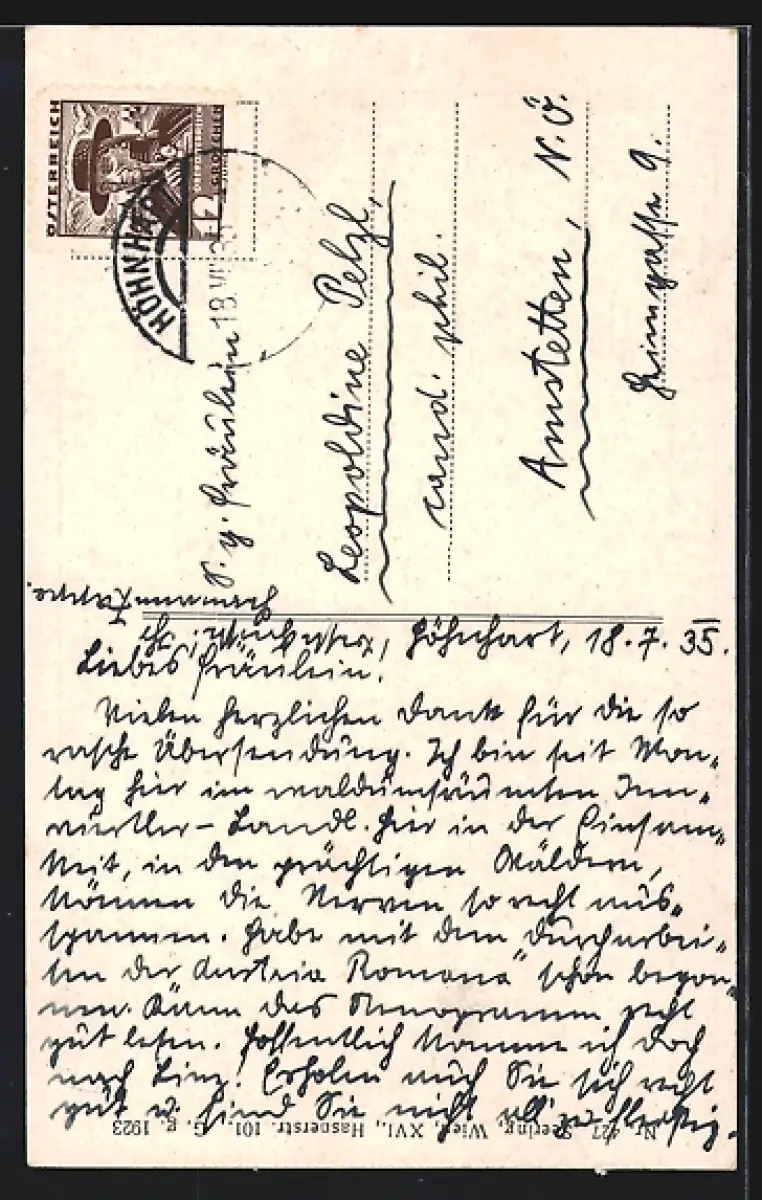 ÖSTERREICH
12
GROSCHEN
HÖHNHART
18.VII.35
S. g. Fräulein
Leopoldine Pelzl,
cand. phil.
Amstetten, N.Ö.
9.
Höhnhart, 18.7.35.
Liebes Fräulein!
Vielen herzlichen Dank für die so
rasche Übersendung. Ich bin seit Mon-
tag hier im waldumsäumten Inn-
viertler-Landl. Hier in der Einsam-
keit, in den prächtigen Wäldern,
können die Nerven so recht aus-
spannen. Habe mit dem Durcharbei-
ten der "Austria Romana" schon begon-
nen. Kann das Stenogramm recht
gut lesen. Hoffentlich komme ich doch
nach Linz! Erholen auch Sie sich recht
gut u. sind Sie nicht all zu fleißig.
Nr. 427 Seering, Wien, XVI., Hasnerstr. 101. G. g. 1923